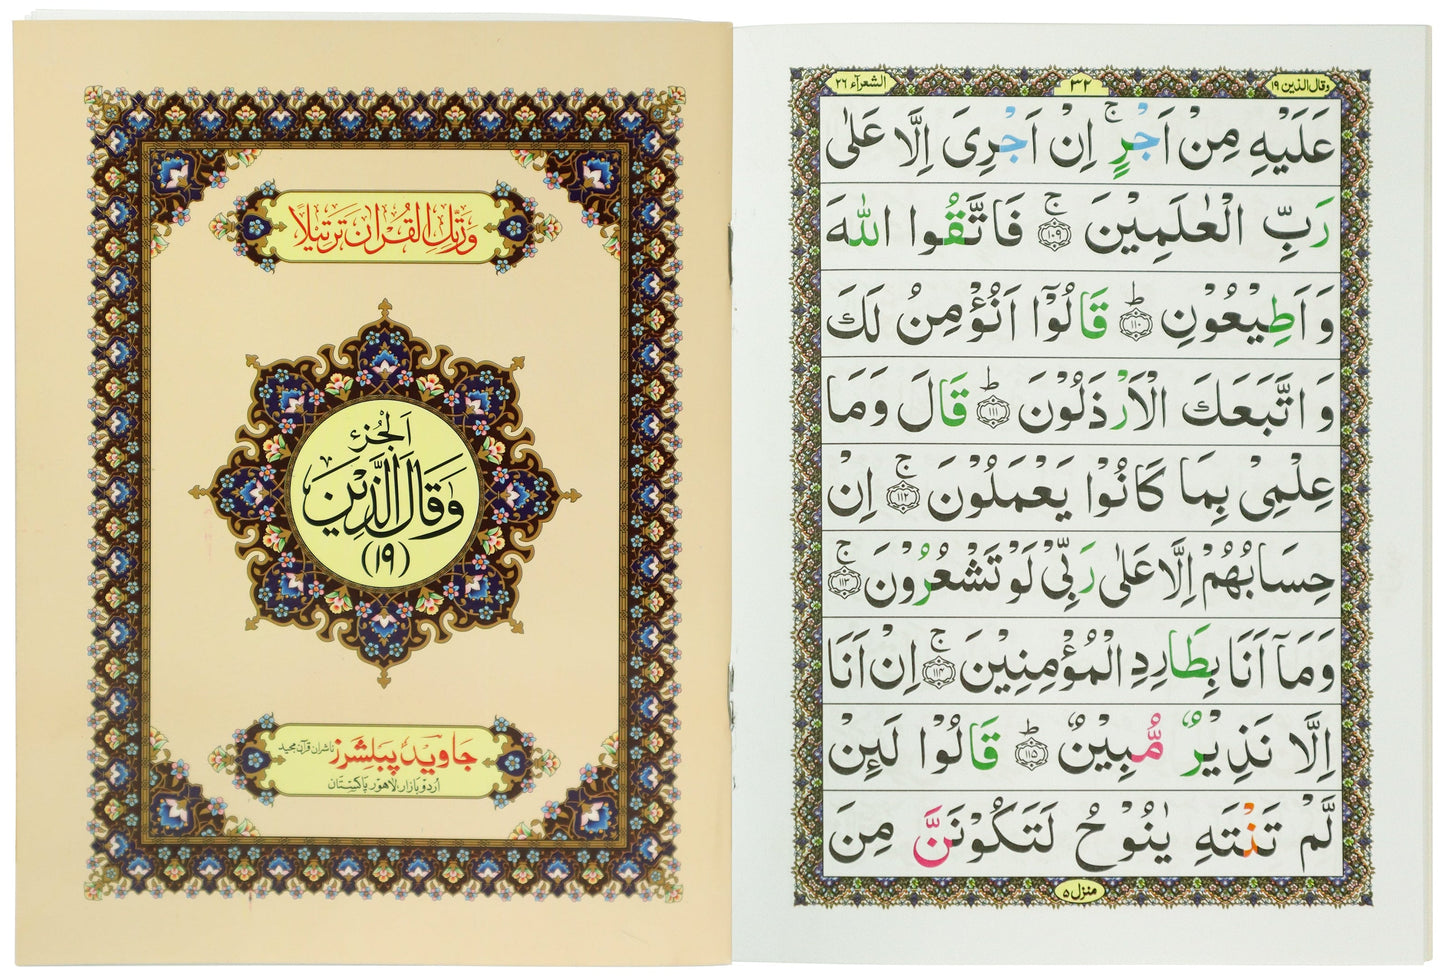 وَرَتِّلِ الْقُرْاٰنَ تَرْتِیْلًا
اَلْجُزْءُ
وَقَالَ الَّذِیْنَ
(۱۹)
جاوید پبلشرز ناشران قرآن مجید
اردو بازار، لاہور پاکستان
وقال الذین ۱۹
۳۲
الشعرآء ۲۶
عَلَیْهِ مِنْ اَجْرٍ ۚ اِنْ اَجْرِیَ اِلَّا عَلٰی
رَبِّ الْعٰلَمِیْنَ ۚ﴿۱۰۹﴾ فَاتَّقُوا اللّٰهَ
وَاَطِیْعُوْنِ ؕ﴿۱۱۰﴾ قَالُوْۤا اَنُؤْمِنُ لَكَ
وَاتَّبَعَكَ الْاَرْذَلُوْنَ ؕ﴿۱۱۱﴾ قَالَ وَمَا
عِلْمِیْ بِمَا كَانُوْا یَعْمَلُوْنَ ۚ﴿۱۱۲﴾ اِنْ
حِسَابُهُمْ اِلَّا عَلٰی رَبِّیْ لَوْ تَشْعُرُوْنَ ۚ﴿۱۱۳﴾
وَمَاۤ اَنَا بِطَارِدِ الْمُؤْمِنِیْنَ ۚ﴿۱۱۴﴾ اِنْ اَنَا
اِلَّا نَذِیْرٌ مُّبِیْنٌ ؕ﴿۱۱۵﴾ قَالُوْا لَىِٕنْ
لَّمْ تَنْتَهِ یٰنُوْحُ لَتَكُوْنَنَّ مِنَ
منزل ۵